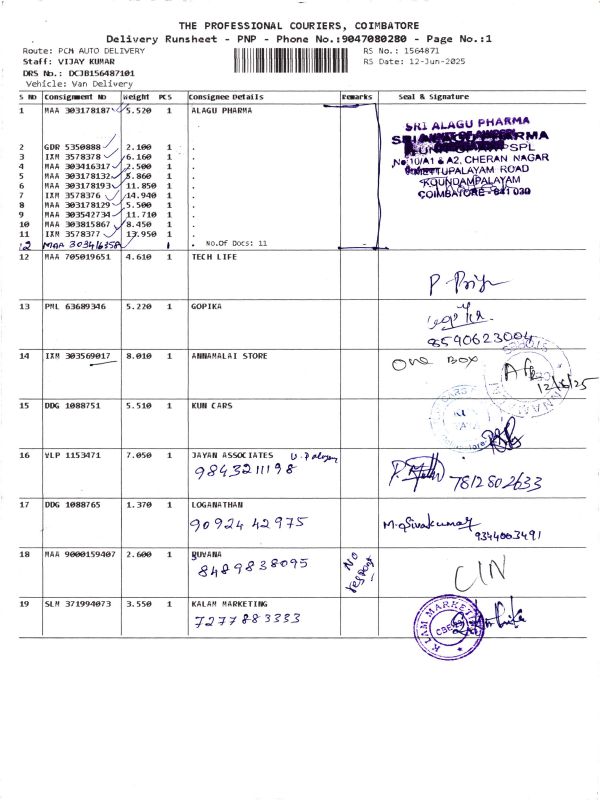 THE PROFESSIONAL COURIERS, COIMBATORE
Delivery Runsheet - PNP - Phone No.:9047080280 - Page No.:1
Route: PCM AUTO DELIVERY RS No.: 1564871
Staff: VIJAY KUMAR RS Date: 12-Jun-2025
DRS No.: DCJB156487101
Vehicle: Van Delivery
S No Consignment No Weight PCS Consignee Details Remarks Seal & Signature
1 MAA 303178187 5.520 1 ALAGU PHARMA
SRI ALAGU PHARMA
2 GDR 5350888 2.100 1 .
3 IXM 3578378 6.160 1 .
4 MAA 303416317 2.500 1 .
5 MAA 303178132 5.860 1 .
6 MAA 303178193 11.850 1 .
7 IXM 3578376 14.940 1 .
8 MAA 303178129 5.500 1 .
9 MAA 303542734 11.710 1 .
10 MAA 303815867 8.450 1 .
11 IXM 3578377 13.950 1 .
No 10/A1 & A2, CHERAN NAGAR
METTUPALAYAM ROAD
KOUNDAMPALAYAM
COIMBATORE - 641 030
12 1 . No.Of Docs: 11
12 MAA 705019651 4.610 1 TECH LIFE
P. Priya
13 PML 63689346 5.220 1 GOPIKA
8590623004
14 IXM 303569017 8.010 1 ANNAMALAI STORE
One BOX
12/6/25
15 DDG 1088751 5.510 1 KUN CARS
16 VLP 1153471 7.050 1 JAYAN ASSOCIATES
9843211198
7812802633
17 DDG 1088765 1.370 1 LOGANATHAN
90924 42975
M. Sivakumar
9344003491
18 MAA 9000159407 2.600 1 RUVANA
8489838095
No
CIN
19 SLM 371994073 3.550 1 KALAM MARKETING
7277883333